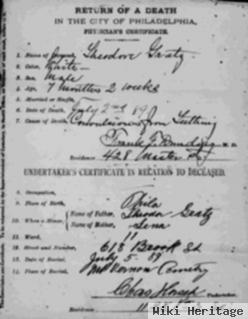 RETURN OF A DEATH
IN THE CITY OF PHILADELPHIA,
PHYSICIAN'S CERTIFICATE.
1. Name of Deceased, Theodore Gratz
2. Color, White
3. Sex, Male
4. Age, 7 months 2 weeks
5. Married or Single,
6. Date of Death, July 2nd 89
7. Cause of Death, Convulsions from Teething
M. D.
Residence 428
UNDERTAKER'S CERTIFICATE IN RELATION TO DECEASED.
8. Occupation,
9. Place of Birth, Phila
10. When a Minor, Name of Father, Theodor Gratz
Name of Mother, Lena
11. Ward,
12. Street and Number, 613 Brook St
13. Date of Burial, July 5 - 89
14. Place of Burial, Mt Vernon Cemetery
Chas
Undertaker
Residence
Wiki Heritage